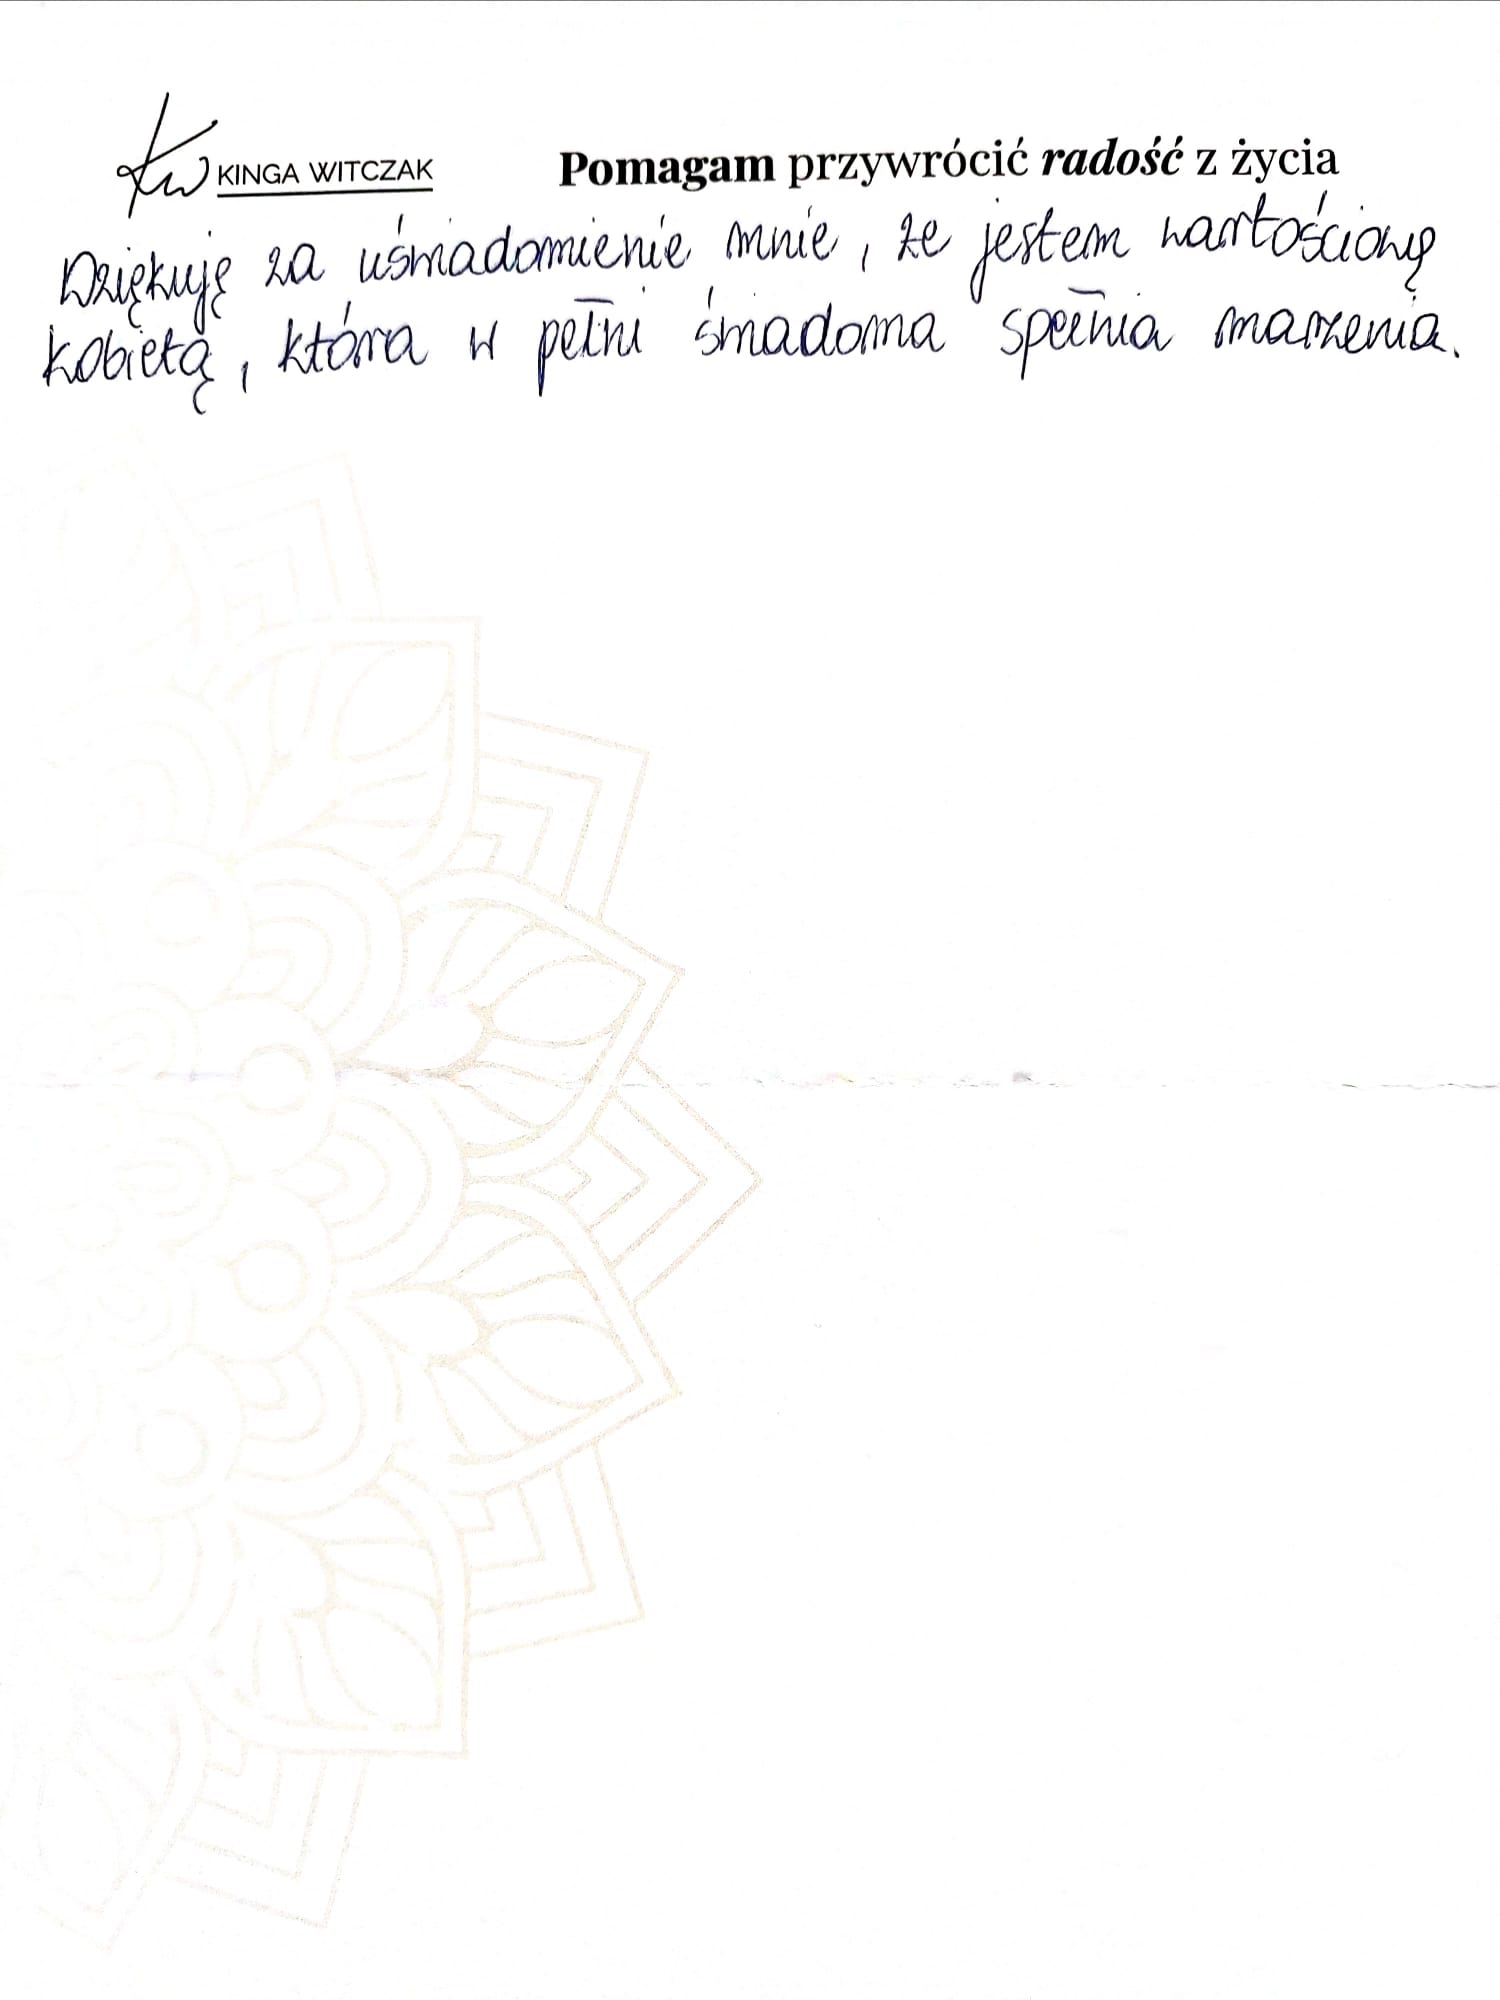 KW KINGA WITCZAK
Pomagam przywrócić radość z życia
Dziękuję za uświadomienie mnie, że jestem wartościową
kobietą, która w pełni świadoma spełnia marzenia.